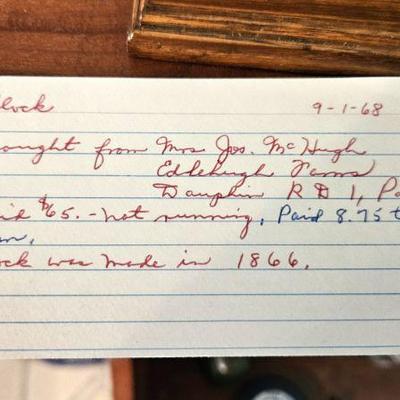 lock 9-1-68
ought from Mrs Jos. McHugh
Edlehugh Farms
Dauphin R D 1, Pa
id $65. - not running. Paid 8.75 t
n.
ock was made in 1866.